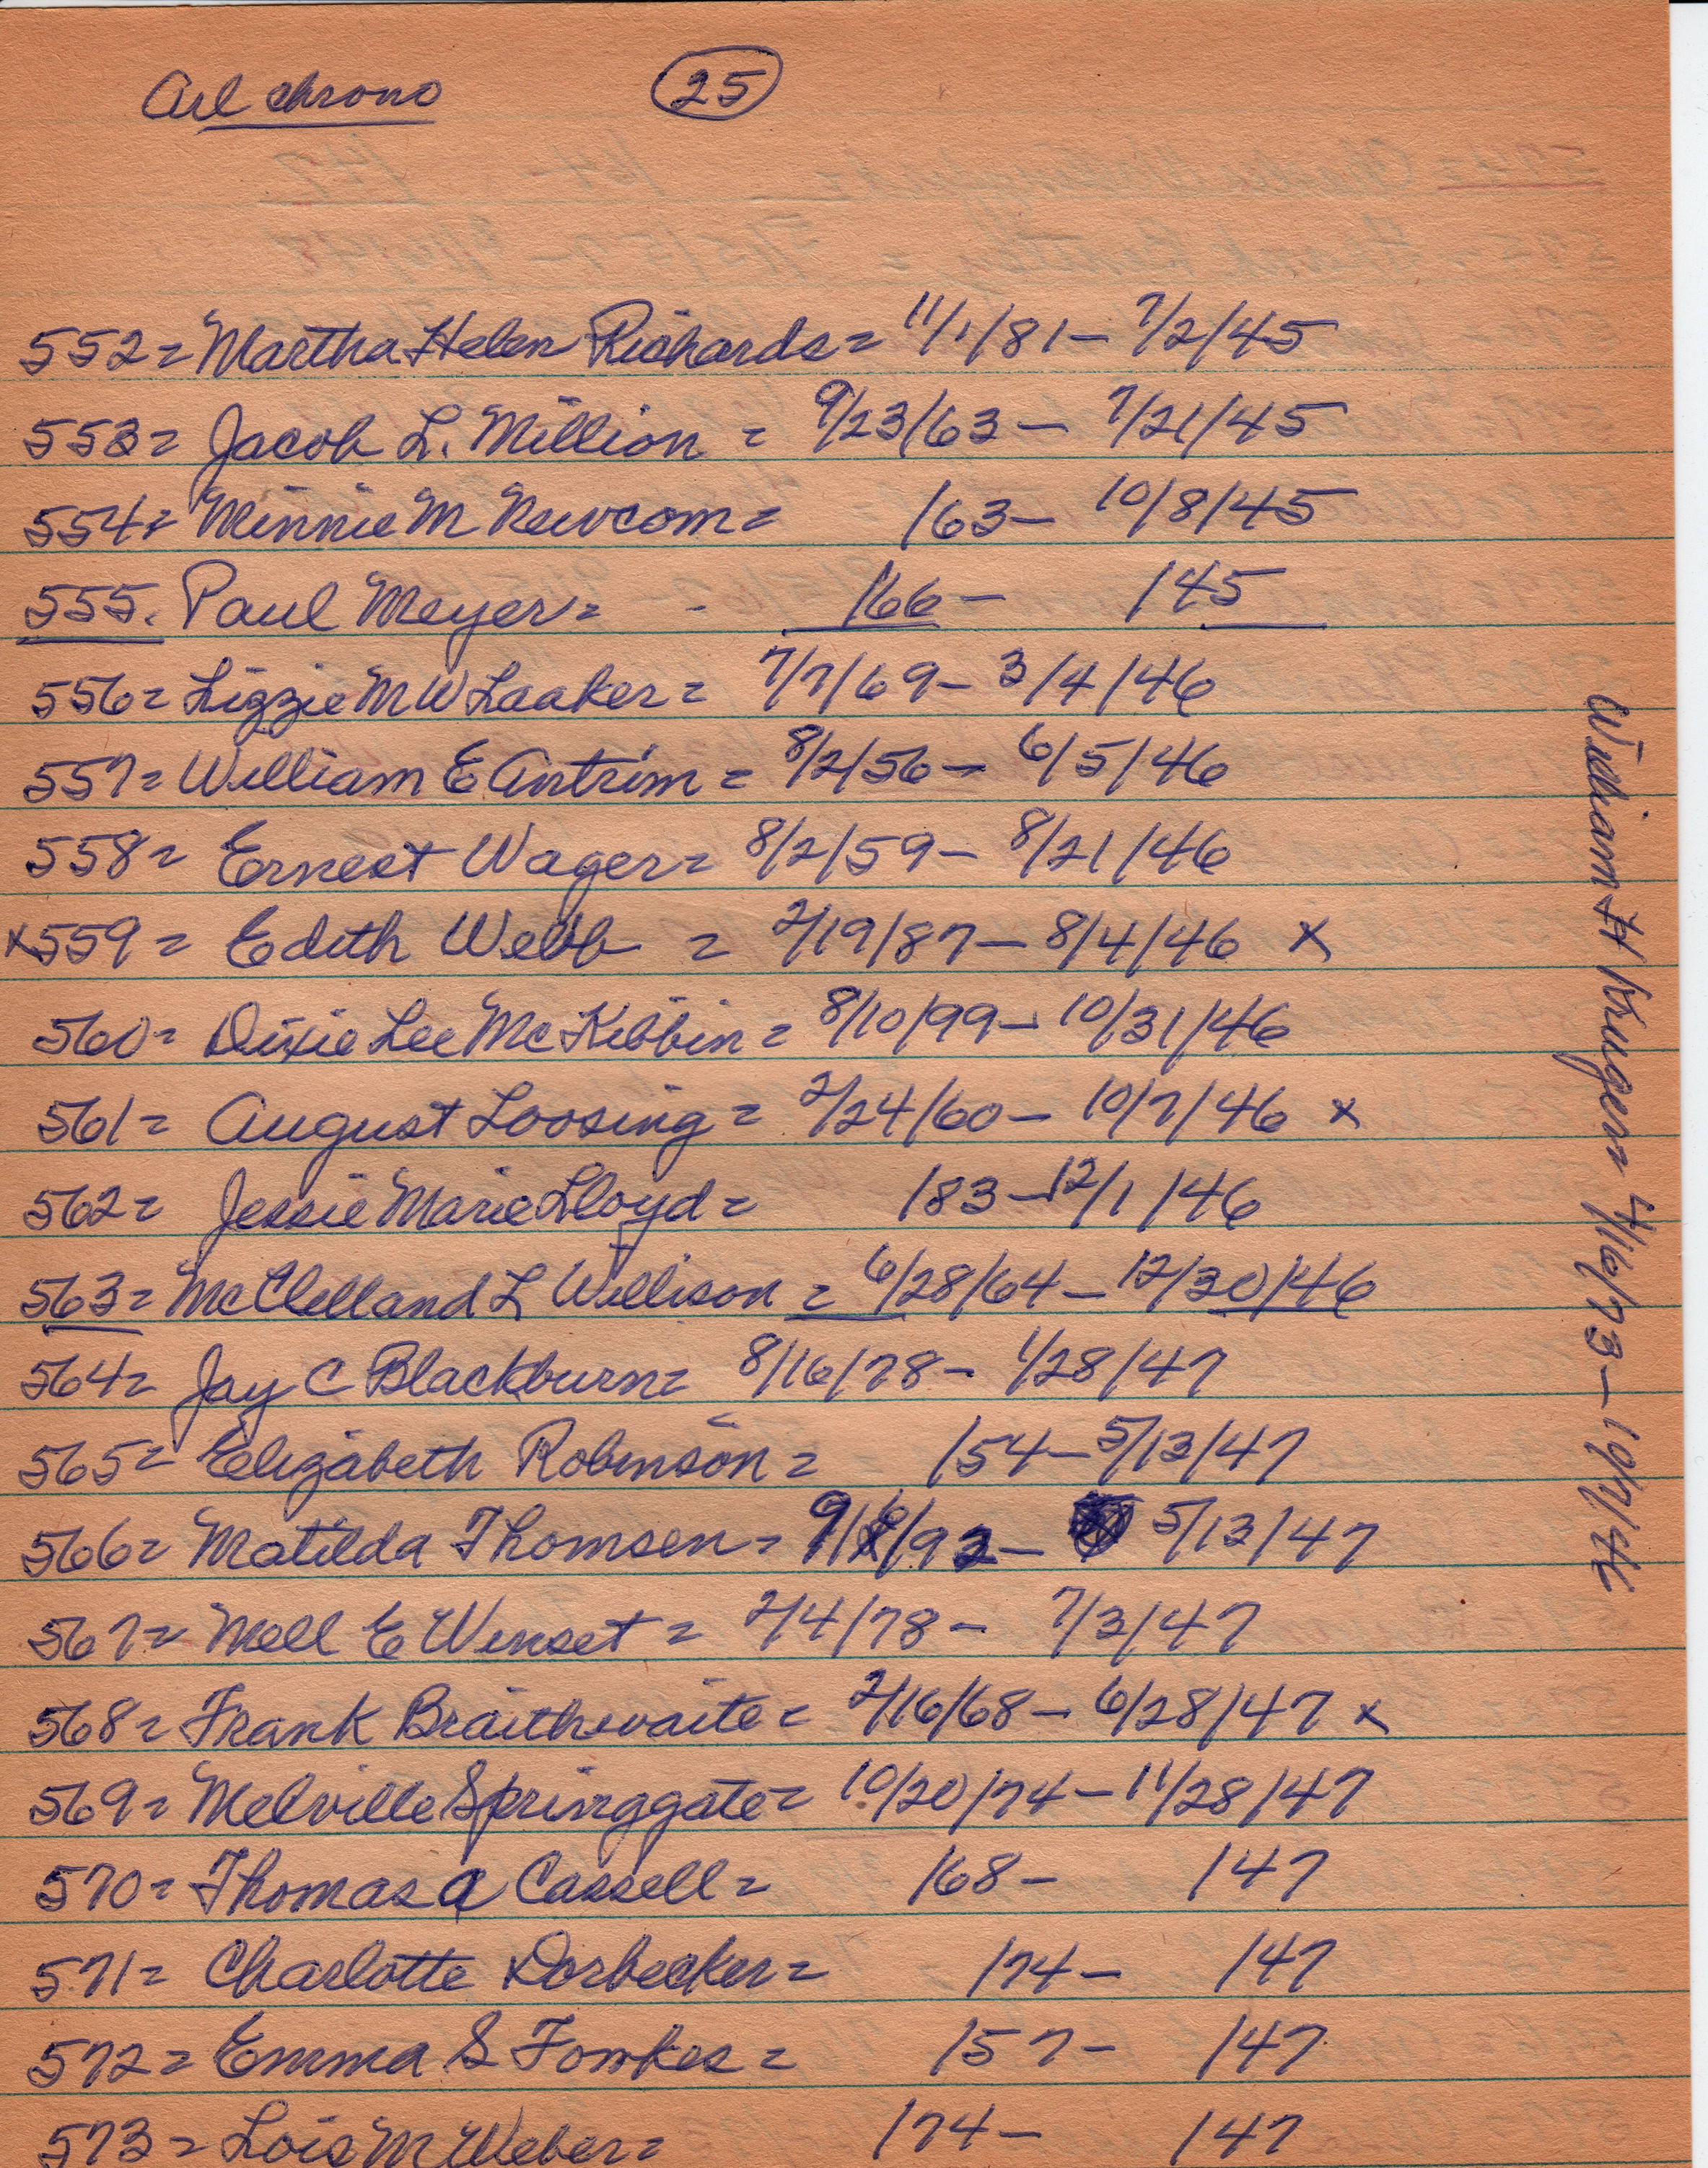 Arl chrono 25
552= Martha Helen Richards= 11/1/81- 7/2/45
553= Jacob L. Million = 9/23/63- 7/21/45
554= Minnie M Newcom= /63- 10/8/45
555. Paul Meyer= - /66- /45
556= Lizzie M W Laaker= 7/7/69- 3/4/46
557= William E Antrim= 8/2/56- 6/5/46
558= Ernest Wager= 8/2/59- 8/21/46
x559= Edith Webb = 2/19/87- 8/4/46 x
560= Dixie Lee McKibbin= 8/10/99- 10/31/46
561= August Loosing= 2/24/60- 10/7/46 x
562= Jessie Marie Lloyd= /83-12/1/46
563= McClelland L Willison= 6/28/64-12/30/46
564= Jay C Blackburn= 8/16/78- 1/28/47
565= Elizabeth Robinson= /54-5/13/47
566= Matilda Thomsen= 5/13/47
567= Mell E Winset= 2/4/78- 7/3/47
568= Frank Braithwaite= 2/16/68- 6/28/47 x
569= Melville Springgate= 10/20/74-11/28/47
570= Thomas A Cassell= /68- /47
571= Charlotte Dorbecker= /74- /47
572= Emma S Fowkes= /57- /47
573= Lois M Weber= /74- /47
William H Krugers 4/16/73- 10/7/46